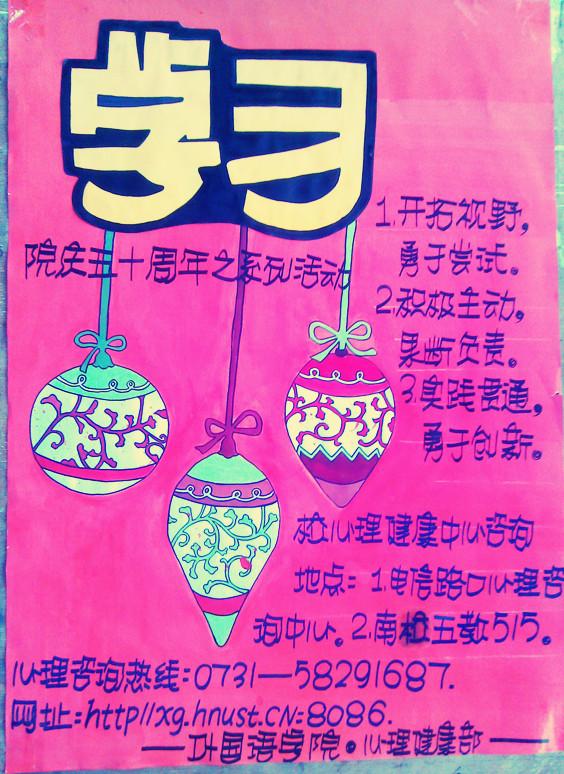 学习
院庆五十周年之系列活动
1.开拓视野,
勇于尝试。
2.积极主动,
果断负责。
3.实践贯通,
勇于创新。
校心理健康中心咨询
地点:1.电信路口心理咨
询中心。2.南校五教515。
心理咨询热线:0731—58291687.
网址:http//xg.hnust.CN:8086.
—外国语学院·心理健康部—